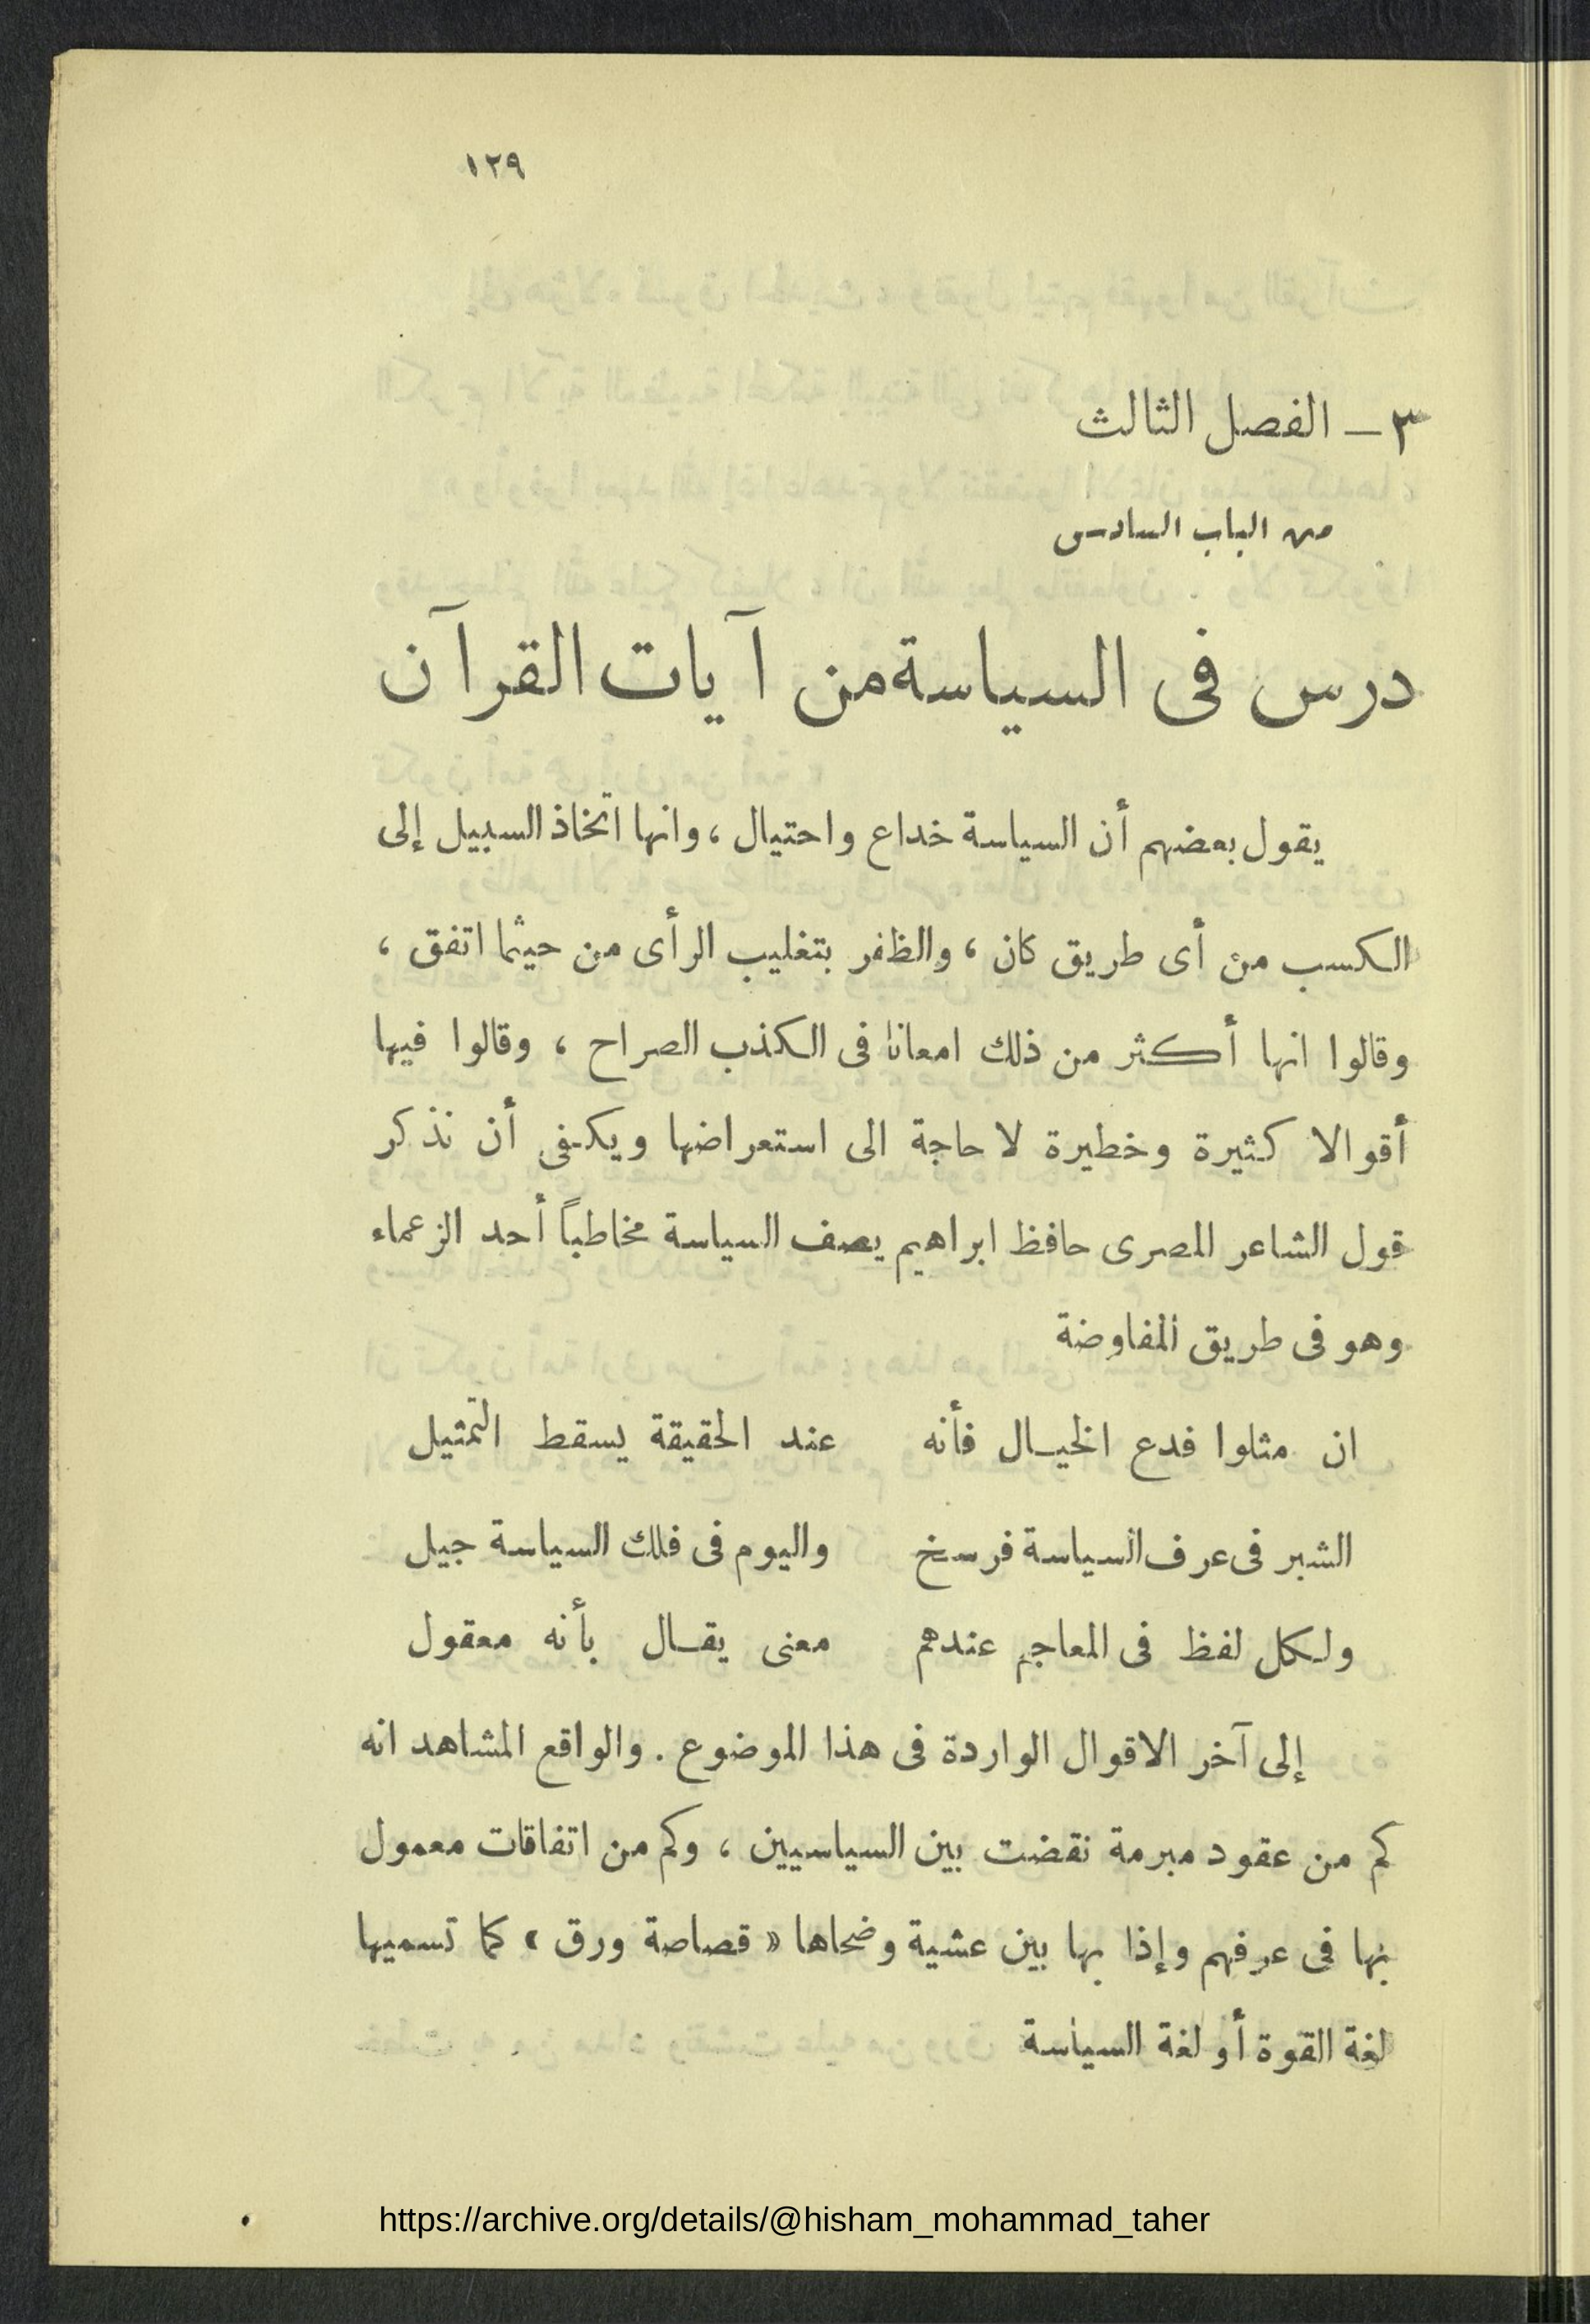 ١٢٩
٣ — الفصل الثالث
من الباب السادس
درس فى السياسة من آيات القرآن
يقول بعضهم أن السياسة خداع واحتيال ، وانها اتخاذ السبيل إلى
الكسب من أى طريق كان ، والظفر بتغليب الرأى من حيثما اتفق ،
وقالوا انها أكثر من ذلك امعانا فى الكذب الصراح ، وقالوا فيها
أقوالا كثيرة وخطيرة لا حاجة الى استعراضها ويكفى أن نذكر
قول الشاعر المصرى حافظ ابراهيم يصف السياسة مخاطباً أحد الزعماء
وهو فى طريق المفاوضة
ان مثلوا فدع الخيال فأنه عند الحقيقة يسقط التمثيل
الشبر فى عرف السياسة فرسخ واليوم فى فلك السياسة جيل
ولكل لفظ فى المعاجم عندهم معنى يقال بأنه معقول
إلى آخر الاقوال الواردة فى هذا الموضوع . والواقع المشاهد انه
كم من عقود مبرمة نقضت بين السياسيين ، وكم من اتفاقات معمول
بها فى عرفهم وإذا بها بين عشية وضحاها « قصاصة ورق » كما تسميها
لغة القوة أو لغة السياسة
https://archive.org/details/@hisham_mohammad_taher